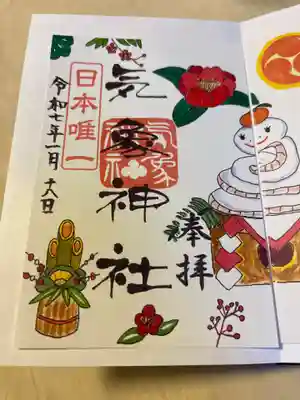 奉拝
気象神社
日本唯一
令和七年一月十八日